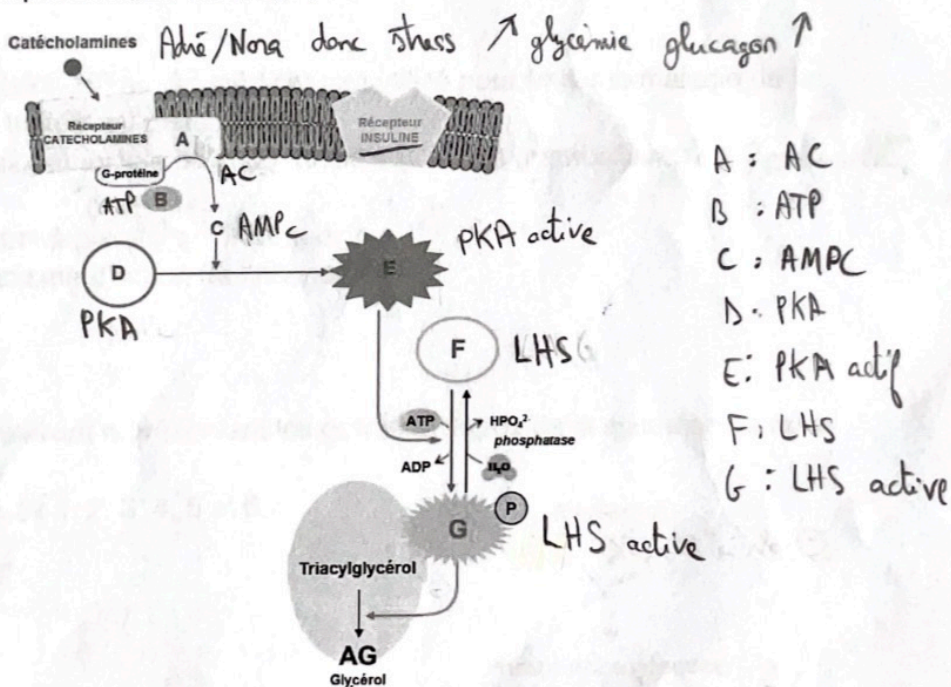 Catécholamines Adré/Nora donc stress ↗ glycémie glucagon ↑
Récepteur
CATECHOLAMINES
A
Récepteur
INSULINE
G-protéine
AC
ATP
B
C AMPc
D
PKA
E
PKA active
F
LHS
ATP
HPO₄²⁻
phosphatase
ADP
H₂O
P
G
LHS active
Triacylglycérol
AG
Glycérol
A : AC
B : ATP
C : AMPC
D : PKA
E : PKA actif
F : LHS
G : LHS active